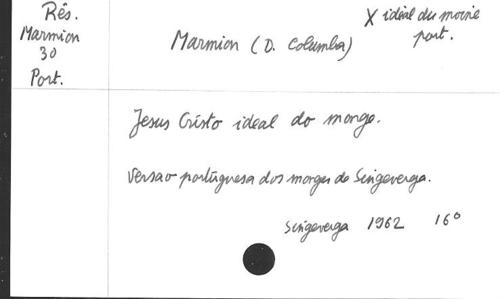 Rés.
Marmion
30
Port.
Marmion (D. Columba)
X idéal du moine
port.
Jesus Cristo ideal do monge.
Versao portuguesa dos monges de Singeverga.
Singeverga 1962 16°